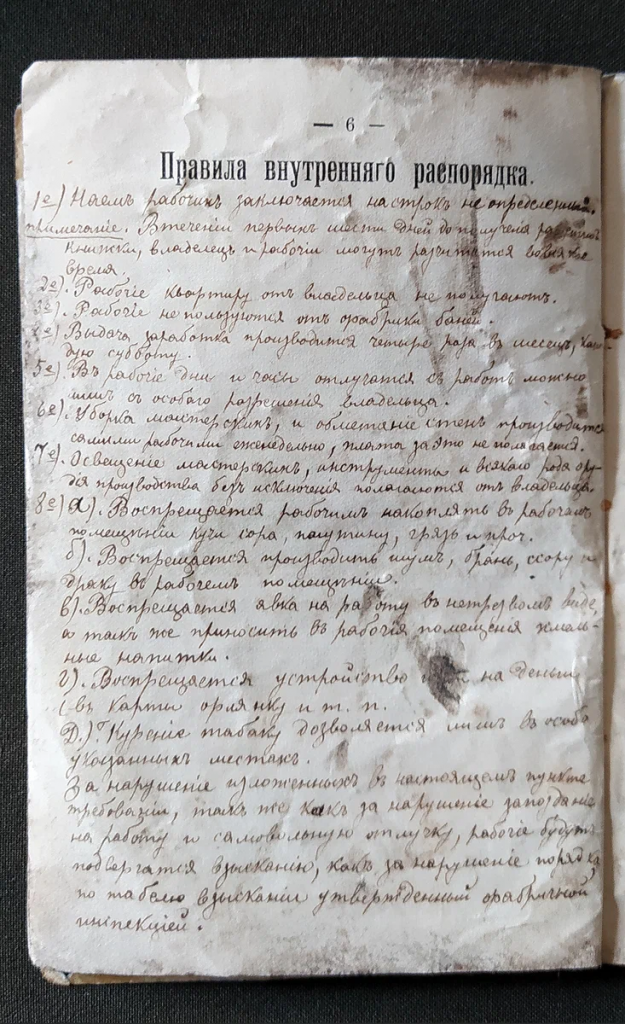 — 6 —
Правила внутренняго распорядка.
1е) Наемъ рабочихъ заключается на строкъ не определенный.
примечаніе. В течении первыхъ шести дней до получения
книжки, владелецъ и рабочіи могутъ разчитатся во всякое
время.
2е). Рабочіе квартиру отъ владельца не получаютъ.
3е). Рабочіе не пользуются отъ фабрики баней.
4е) Выдача заработка производится четыре раза въ месецъ, каж-
дую субботу.
5е). Въ рабочіе дни и часы отлучатся съ работъ можно
лишь съ особаго разрешения владельца.
6е). Уборка мастерскихъ, и обметаніе стенъ производится
самими рабочими еженедельно, плата за это не полагается.
7е). Освещеніе мастерскихъ, инструменты и всякаго рода ору-
дія производства безъ исключенія полагаются отъ владельца.
8е) а). Воспрещается рабочимъ накоплять въ рабочемъ
помещѣніи кучи сора, паутину, грязь и проч.
б). Воспрещается производить шумъ, брань, ссору и
драку въ рабочемъ помещѣніи.
в). Воспрещается явка на работу въ нетрезвомъ виде,
а такъ же приносить въ рабочія помещенія хмель-
ные напитки.
г). Воспрещается устройство на деньги
(въ карты орлянку и т. п.
Д.) Куреніе табаку дозволяется лишъ въ особо
указанныхъ местахъ.
За нарушеніе изложенныхъ въ настоящемъ пункте
требовании, такъ же какъ за нарушеніе запозданіе
на работу и самовольную отлучку, рабочіе будутъ
подвергатся взысканію, какъ за нарушеніе порядка,
по табелю взысканіи утвержденный фабричной
инспекціей.